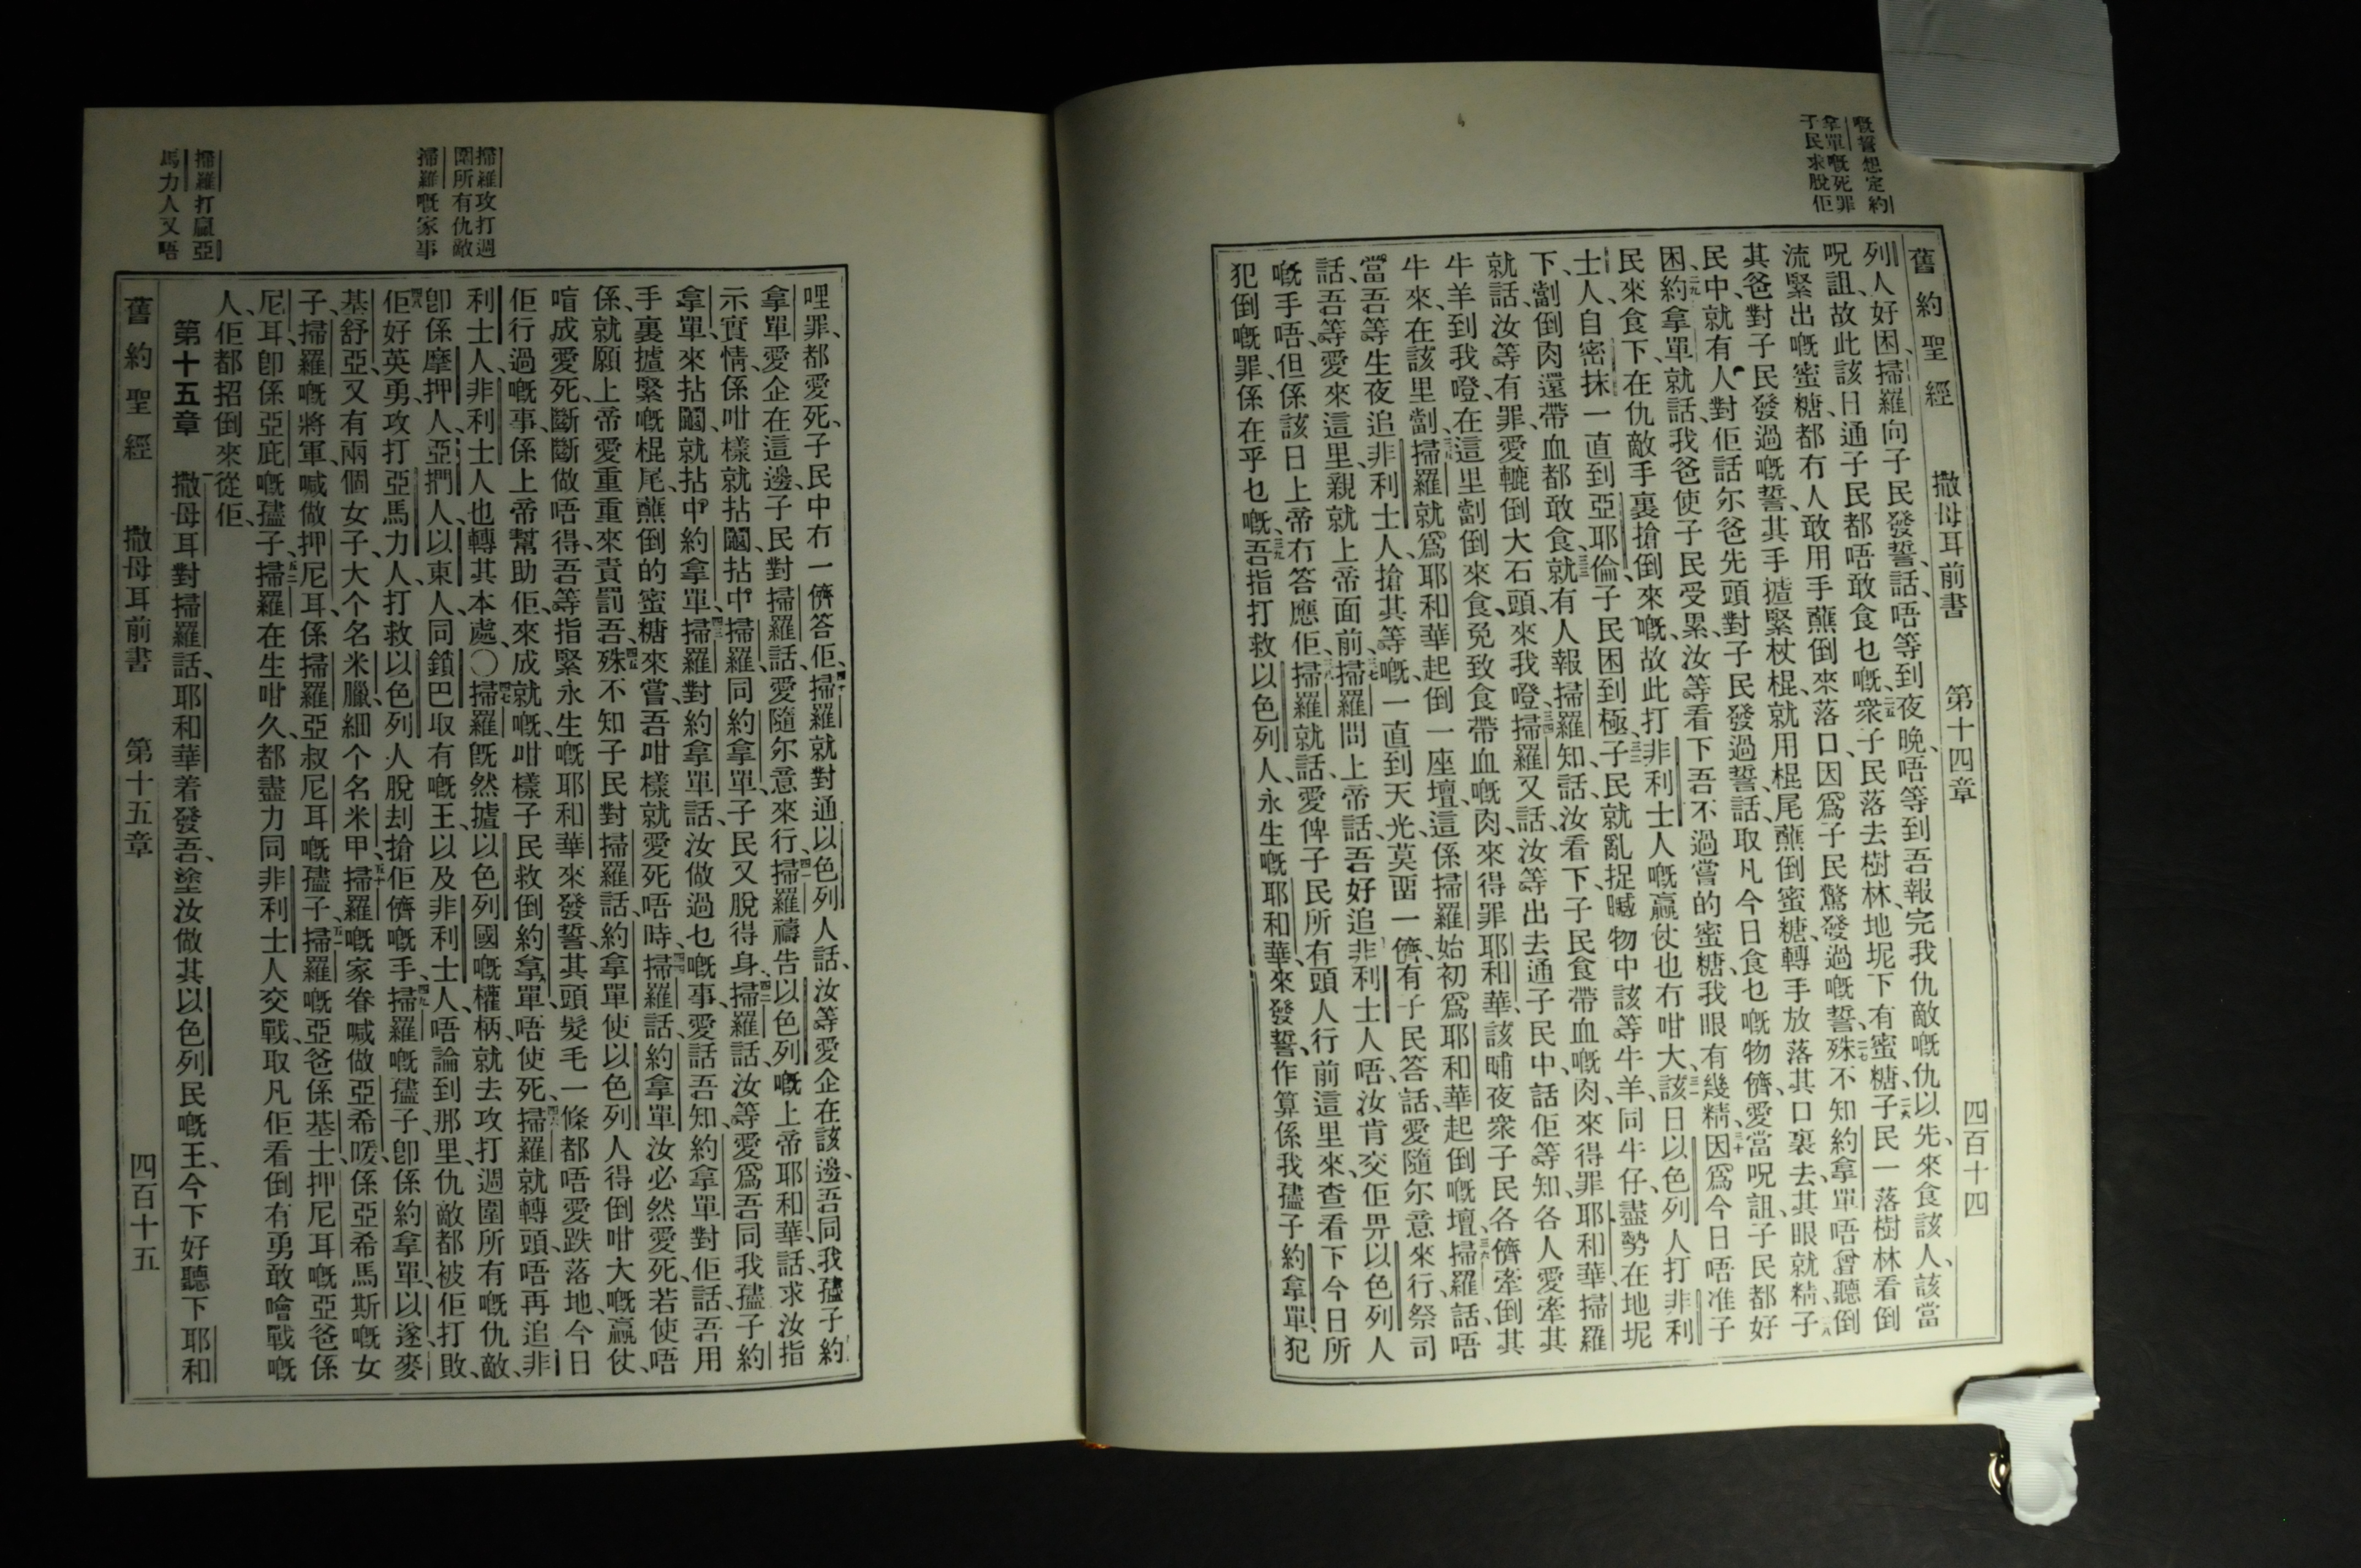 嘅誓想定約
拿單嘅死罪
子民求脫佢
舊約聖經 撒母耳前書 第十四章 四百十四
列人好困、掃羅向子民發誓、話、唔等到夜晚、唔等到吾報完我仇敵嘅仇以先、來食該人、該當
呪詛、故此該日、通子民都唔敢食乜嘅、二五衆子民落去樹林、地坭下有蜜糖、二六子民一落樹林看倒
流緊出嘅蜜糖、都冇人敢用手蘸倒來落口、因爲子民驚發過嘅誓、二七殊不知約拿單唔曾聽倒
其爸對子民發過嘅誓、其手𢴈緊杖棍、就用棍尾蘸倒蜜糖、轉手放落其口裏去、其眼就精、二八子
民中、就有人對佢話、尔爸先頭對子民發過誓、話、取凡今日食乜嘅物儕、愛當呪詛、子民都好
困、二九約拿單就話、我爸使子民受累、汝等看下、吾不過嘗的蜜糖、我眼有幾精、三十因爲今日唔准子
民來食下、在仇敵手裏搶倒來嘅、故此打非利士人嘅贏仗也冇咁大、三一該日以色列人打非利
士人、自密抹一直到亞耶倫、子民困到極、三二子民就亂捉𧷢物中該等牛羊、同牛仔、盡勢在地坭
下、劏倒肉還帶血都敢食、三三就有人報掃羅知、話、汝看下、子民食帶血嘅肉、來得罪耶和華、掃羅
就話、汝等有罪、愛轆倒大石頭、來我嶝、三四掃羅又話、汝等出去通子民中、話佢等知、各人愛牽其
牛羊到我嶝、在這里劏倒來食、免致食帶血嘅肉、來得罪耶和華、該晡夜衆子民、各儕牽倒其
牛來、在該里劏、三五掃羅就爲耶和華起倒一座壇、這係掃羅始初爲耶和華起倒嘅壇、三六掃羅話、唔
當吾等生夜追非利士人、搶其等嘅、一直到天光、莫畱一儕、有子民答話、愛隨尔意來行、祭司
話、吾等愛來這里、親就上帝面前、三七掃羅問上帝話、吾好追非利士人唔、汝肯交佢畀以色列人
嘅手唔、但係該日上帝冇答應佢、三八掃羅就話、愛俾子民所有頭人行前這里來、查看下今日所
犯倒嘅罪、係在乎乜嘅、三九吾指打救以色列人、永生嘅耶和華、來發誓、作算係我𡥧子約拿單、犯
掃羅攻打週
圍所有仇敵
掃羅嘅家事
掃羅打贏亞
馬力人又唔
哩罪、都愛死、子民中冇一儕答佢、四十掃羅就對通以色列人話、汝等愛企在該邊、吾同我𡥧子約
拿單愛企在這邊、子民對掃羅話、愛隨尔意來行、四一掃羅禱告以色列嘅上帝耶和華、話、求汝指
示實情、係咁樣就拈鬮、拈中掃羅、同約拿單、子民又脫得身、四二掃羅話、汝等愛爲吾同我𡥧子約
拿單、來拈鬮、就拈中約拿單、四三掃羅對約拿單話、汝做過乜嘅事、愛話吾知、約拿單對佢話、吾用
手裏攎緊嘅棍尾、蘸倒的蜜糖來嘗、吾咁樣就愛死唔時、四四掃羅話、約拿單汝必然愛死、若使唔
係、就願上帝愛重重來責罰吾、四五殊不知子民對掃羅話、約拿單使以色列人得倒咁大嘅贏仗、
唷成愛死、斷斷做唔得、吾等指緊永生嘅耶和華來發誓、其頭髮毛一條都唔愛跌落地、今日
佢行過嘅事、係上帝幫助佢、來成就嘅、咁樣子民救倒約拿單、唔使死、四六掃羅就轉頭、唔再追非
利士人、非利士人也轉其本處、〇四七掃羅旣然攎以色列國嘅權柄、就去攻打週圍所有嘅仇敵、
卽係摩押人、亞捫人、以東人、同鎖巴取有嘅王、以及非利士人、唔論到那里、仇敵都被佢打敗、
四八佢好英勇、攻打亞馬力人、打救以色列人脫刦搶佢儕嘅手、四九掃羅嘅𡥧子、卽係約拿單、以遂、麥
基舒亞、又有兩個女子、大个名米臘、細个名米甲、五十掃羅嘅家眷喊做亞希暖、係亞希馬斯嘅女
子、掃羅嘅將軍、喊做押尼耳、係掃羅亞叔尼耳嘅𡥧子、五一掃羅嘅亞爸係基士、押尼耳嘅亞爸係
尼耳、卽係亞庇嘅𡥧子、五二掃羅在生咁久、都盡力同非利士人交戰、取凡佢看倒有勇敢噲戰嘅
人、佢都招倒來從佢、
第十五章 一撒母耳對掃羅話、耶和華着發吾、塗汝做其以色列民嘅王、今下好聽下耶和
舊約聖經 撒母耳前書 第十五章 四百十五